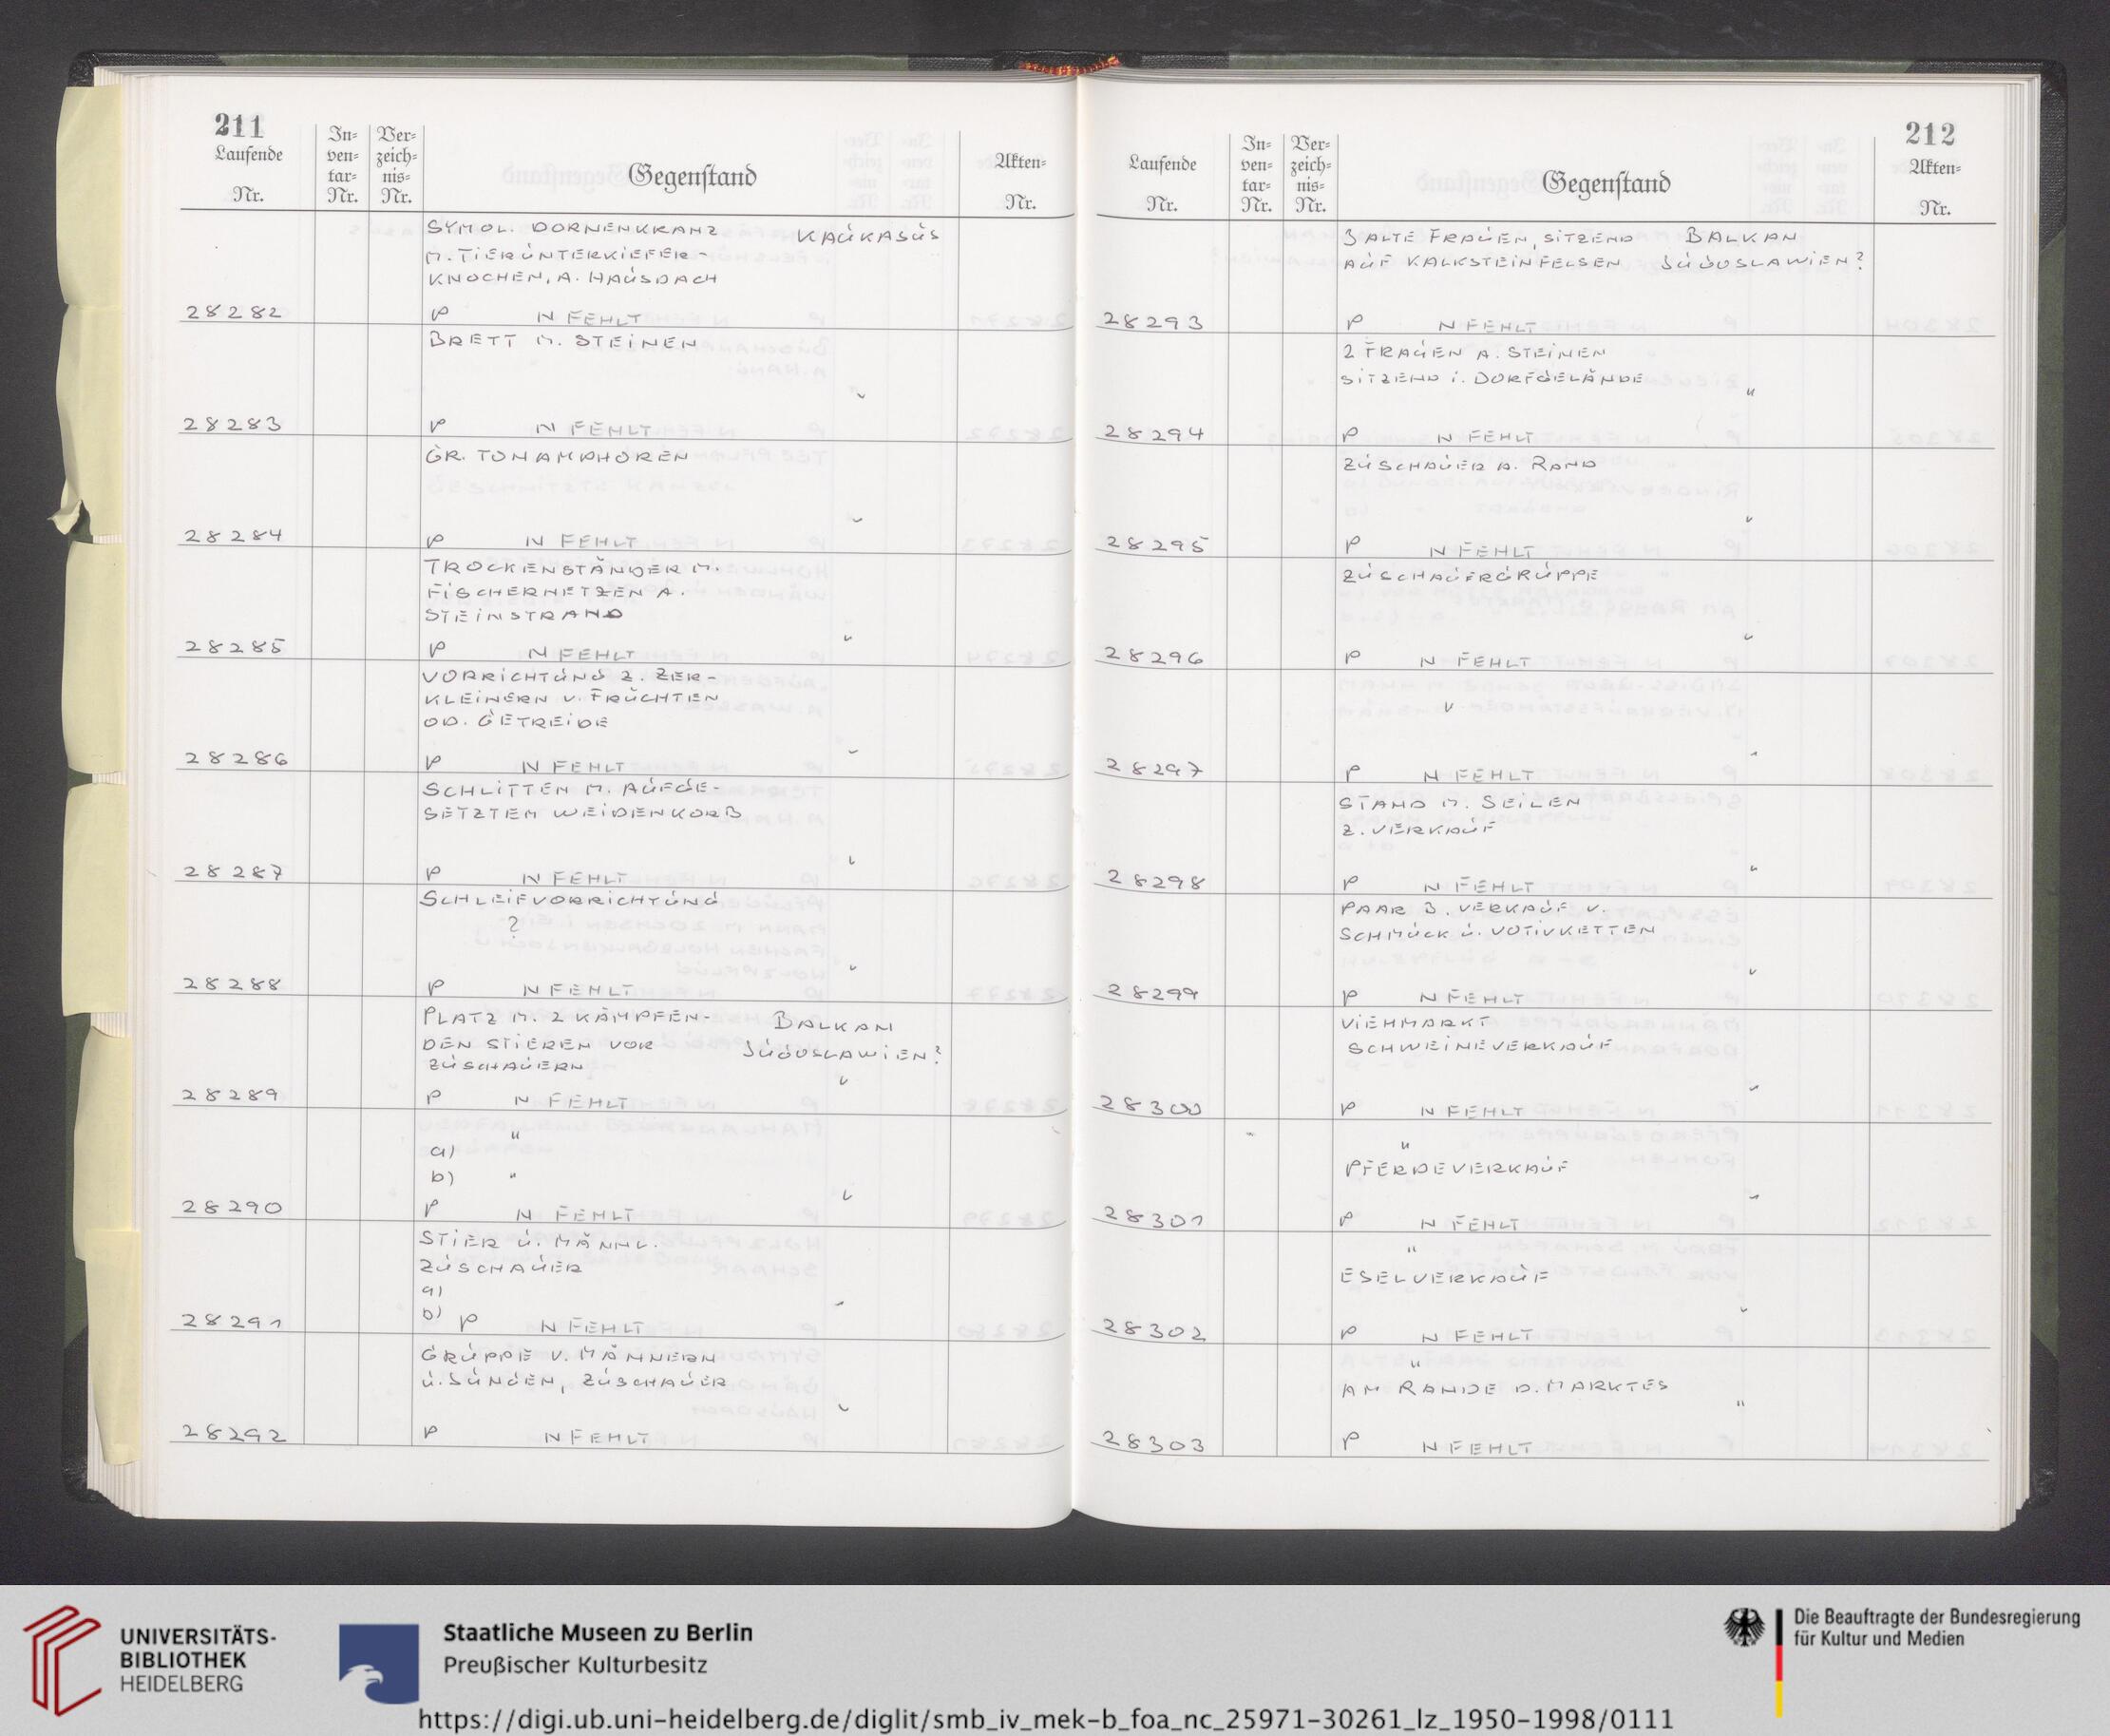 211
Laufende Nr.
In-ven-tar-Nr.
Ver-zeich-nis-Nr.
Gegenstand
Akten-Nr.
SYMOL. DORNENKRANZ KAUKASUS
M. TIERUNTERKIEFER-
KNOCHEN, A. HAUSDACH
28282 P N FEHLT
BRETT M. STEINEN
"
28283 P N FEHLT
GR. TONAMPHOREN
"
28284 P N FEHLT
TROCKENSTÄNDER M.
FISCHERNETZEN A.
STEINSTRAND
"
28285 P N FEHLT
VORRICHTUNG Z. ZER-
KLEINERN V. FRÜCHTEN
OD. GETREIDE
"
28286 P N FEHLT
SCHLITTEN M. AUFGE-
SETZTEM WEIDENKORB
"
28287 P N FEHLT
SCHLEIFVORRICHTUNG
?
"
28288 P N FEHLT
PLATZ M. 2 KÄMPFEN- BALKAN
DEN STIEREN VOR JUGOSLAWIEN?
ZUSCHAUERN
"
28289 P N FEHLT
"
a)
b) "
"
28290 P N FEHLT
STIER U. MÄNNL.
ZUSCHAUER
a)
"
28291 b) P N FEHLT
GRUPPE V. MÄNNERN
U. JUNGEN, ZUSCHAUER
"
28292 P N FEHLT
212
Laufende Nr.
In-ven-tar-Nr.
Ver-zeich-nis-Nr.
Gegenstand
Akten-Nr.
3 ALTE FRAUEN, SITZEND BALKAN
AUF KALKSTEINFELSEN JUGOSLAWIEN?
28293 P N FEHLT
2 FRAUEN A. STEINEN
SITZEND I. DORFGELÄNDE "
28294 P N FEHLT
ZUSCHAUER A. RAND
"
28295 P N FEHLT
ZUSCHAUERGRUPPE
"
28296 P N FEHLT
"
"
28297 P N FEHLT
STAND M. SEILEN
Z. VERKAUF
"
28298 P N FEHLT
PAAR B. VERKAUF V.
SCHMUCK U. VOTIVKETTEN
"
28299 P N FEHLT
VIEHMARKT
SCHWEINEVERKAUF
"
28300 P N FEHLT
"
PFERDEVERKAUF
"
28301 P N FEHLT
"
ESELVERKAUF
"
28302 P N FEHLT
"
AM RANDE D. MARKTES
"
28303 P N FEHLT
UNIVERSITÄTS-
BIBLIOTHEK
HEIDELBERG
Staatliche Museen zu Berlin
Preußischer Kulturbesitz
Die Beauftragte der Bundesregierung
für Kultur und Medien
https://digi.ub.uni-heidelberg.de/diglit/smb_iv_mek-b_foa_nc_25971-30261_lz_1950-1998/0111